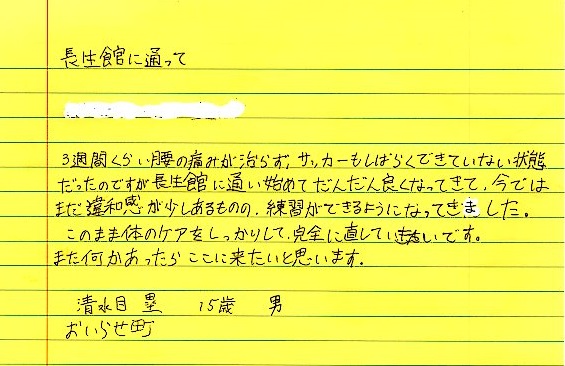 長生館に通って
3週間くらい腰の痛みが治らず、サッカーもしばらくできていない状態
だったのですが長生館に通い始めてだんだん良くなってきて、今では
まだ違和感が少しあるものの、練習ができるようになってきました。
このまま体のケアをしっかりして、完全に直していきたいです。
また何かあったらここに来たいと思います。
清水目 塁 15歳 男
おいらせ町